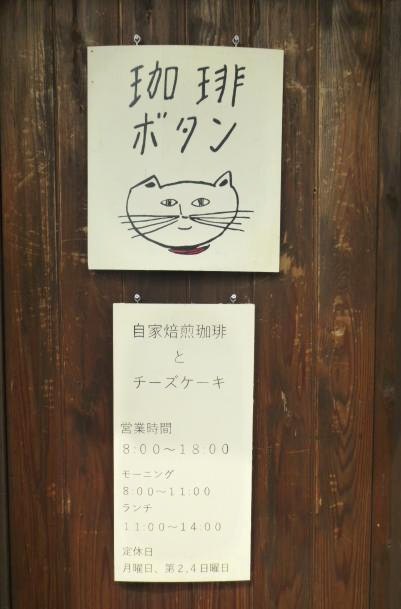 珈琲
ボタン
自家焙煎珈琲
と
チーズケーキ
営業時間
8:00～18:00
モーニング
8:00～11:00
ランチ
11:00～14:00
定休日
月曜日、第2,4日曜日